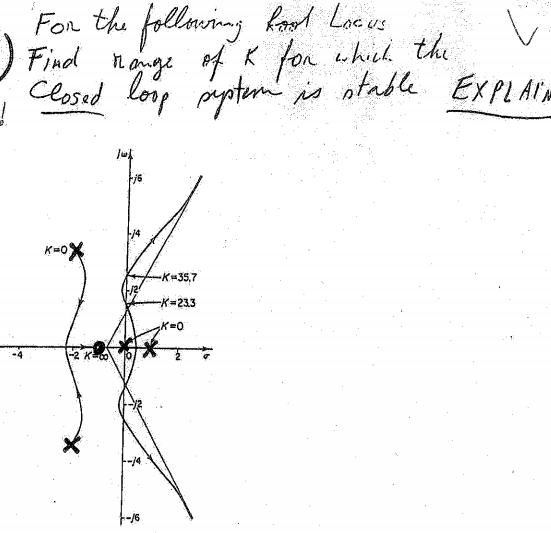 For the following Root Locus
) Find range of K for which the
Closed loop system is stable EXPLAIN
jω
j6
j4
K=0
K=35.7
j2
K=23.3
K=0
-4
-2
K=∞
0
2
σ
-j2
-j4
-j6